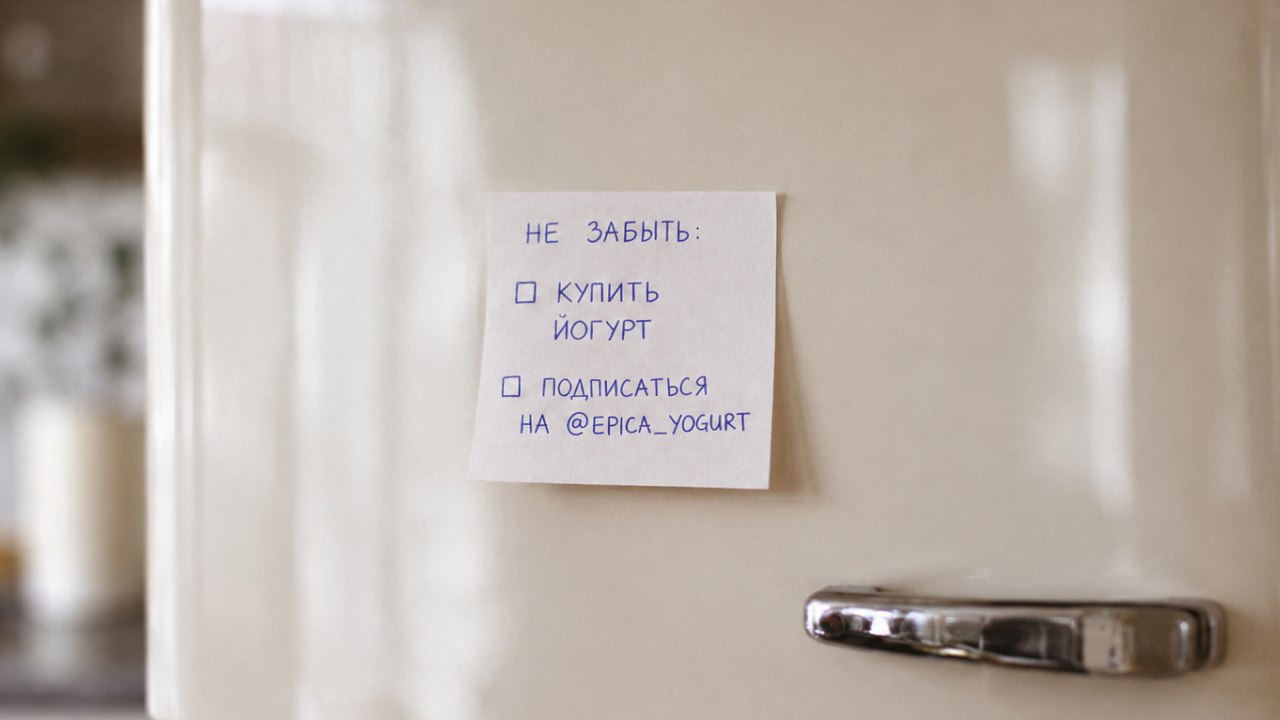 НЕ ЗАБЫТЬ:
☐ КУПИТЬ
ЙОГУРТ
☐ ПОДПИСАТЬСЯ
НА @EPICA_YOGURT